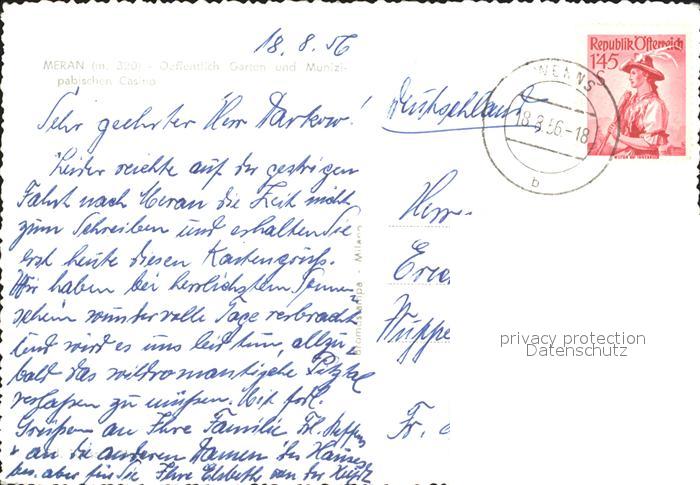 18.8.56
MERAN (m. 320) - Oeffentlich Garten und Munizi-
pabischen Casino
Sehr geehrter Herr Darkow!
Leider reichte auf der gestrigen
Fahrt nach Meran die Zeit nicht
zum Schreiben und erhalten Sie
erst heute diesen Kartengruß.
Wir haben bei herrlichstem Sonnen
schein wundervolle Tage verbracht
und wird es uns leid tun, allzu
bald das wildromantische Pitztal
verlassen zu müssen. Mit frdl.
Grüßen an Ihre Familie, Frl.
u an die anderen Damen des Hauses
bes. aber für Sie Ihre Elsbeth von der
Milano
Republik Österreich
1'45
S
WENNS
18.8.56-18
b
Deutschland
Herrn
Eric
Wuppe
Fr.
privacy protection
Datenschutz